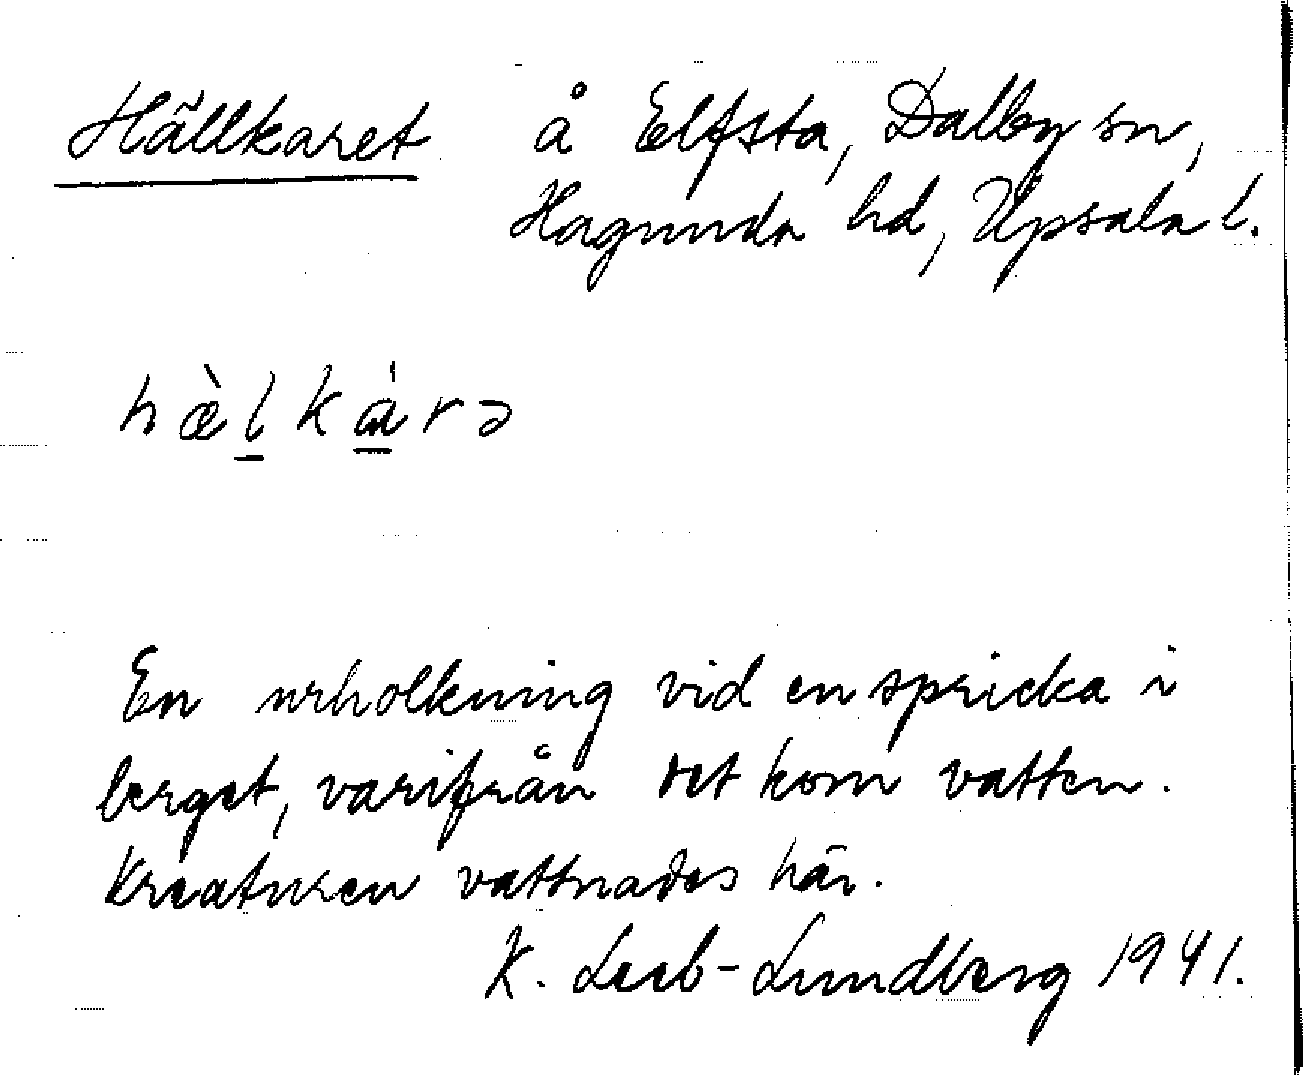 Hällkaret å Elfsta, Dalby sn,
Hagunda hd, Upsala l.
hæ̀l̲ká̲rə
En urholkning vid en spricka i
berget, varifrån det kom vatten.
Kreaturen vattnades här.
K. Leeb-Lundberg 1941.